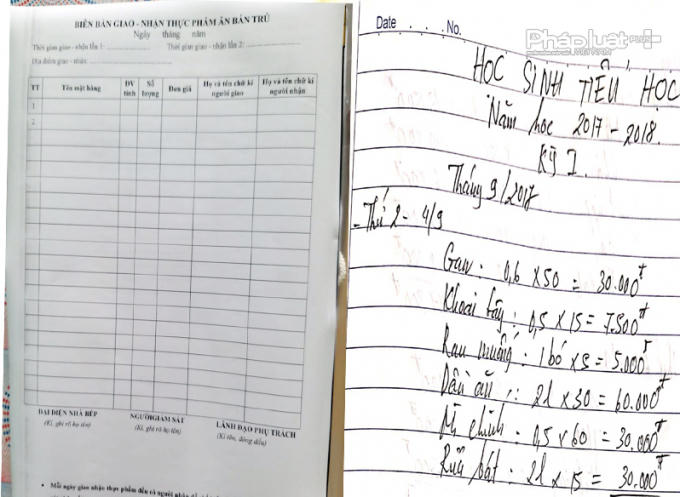 BIÊN BẢN GIAO - NHẬN THỰC PHẨM ĂN BÁN TRÚ
Ngày tháng năm
Thời gian giao - nhận lần 1: Thời gian giao - nhận lần 2:
Địa điểm giao - nhận:
TT Tên mặt hàng ĐV tính Số lượng Đơn giá Họ và tên chữ kí người giao Họ và tên chữ kí người nhận
1
2
ĐẠI DIỆN NHÀ BẾP NGƯỜI GIÁM SÁT LÃNH ĐẠO PHỤ TRÁCH
(Kí, ghi rõ họ tên) (Kí, ghi rõ họ tên) (Kí tên, đóng dấu)
Mỗi ngày giao nhận thực phẩm đều có người
Date No.
Pháp luật PLUS
VIETNAM
HỌC SINH TIỂU HỌC
Năm học 2017 - 2018.
Kỳ I.
Tháng 9/2017
- Thứ 2 - 4/9
Gan : 0,6 x 50 = 30.000đ
Khoai tây : 0,5 x 15 = 7.500đ
Rau muống : 1 bó x 5 = 5.000đ
Dầu ăn : 2l x 30 = 60.000đ
Mì chính : 0,5 x 60 = 30.000đ
Rửa bát : 2l x 15 = 30.000đ